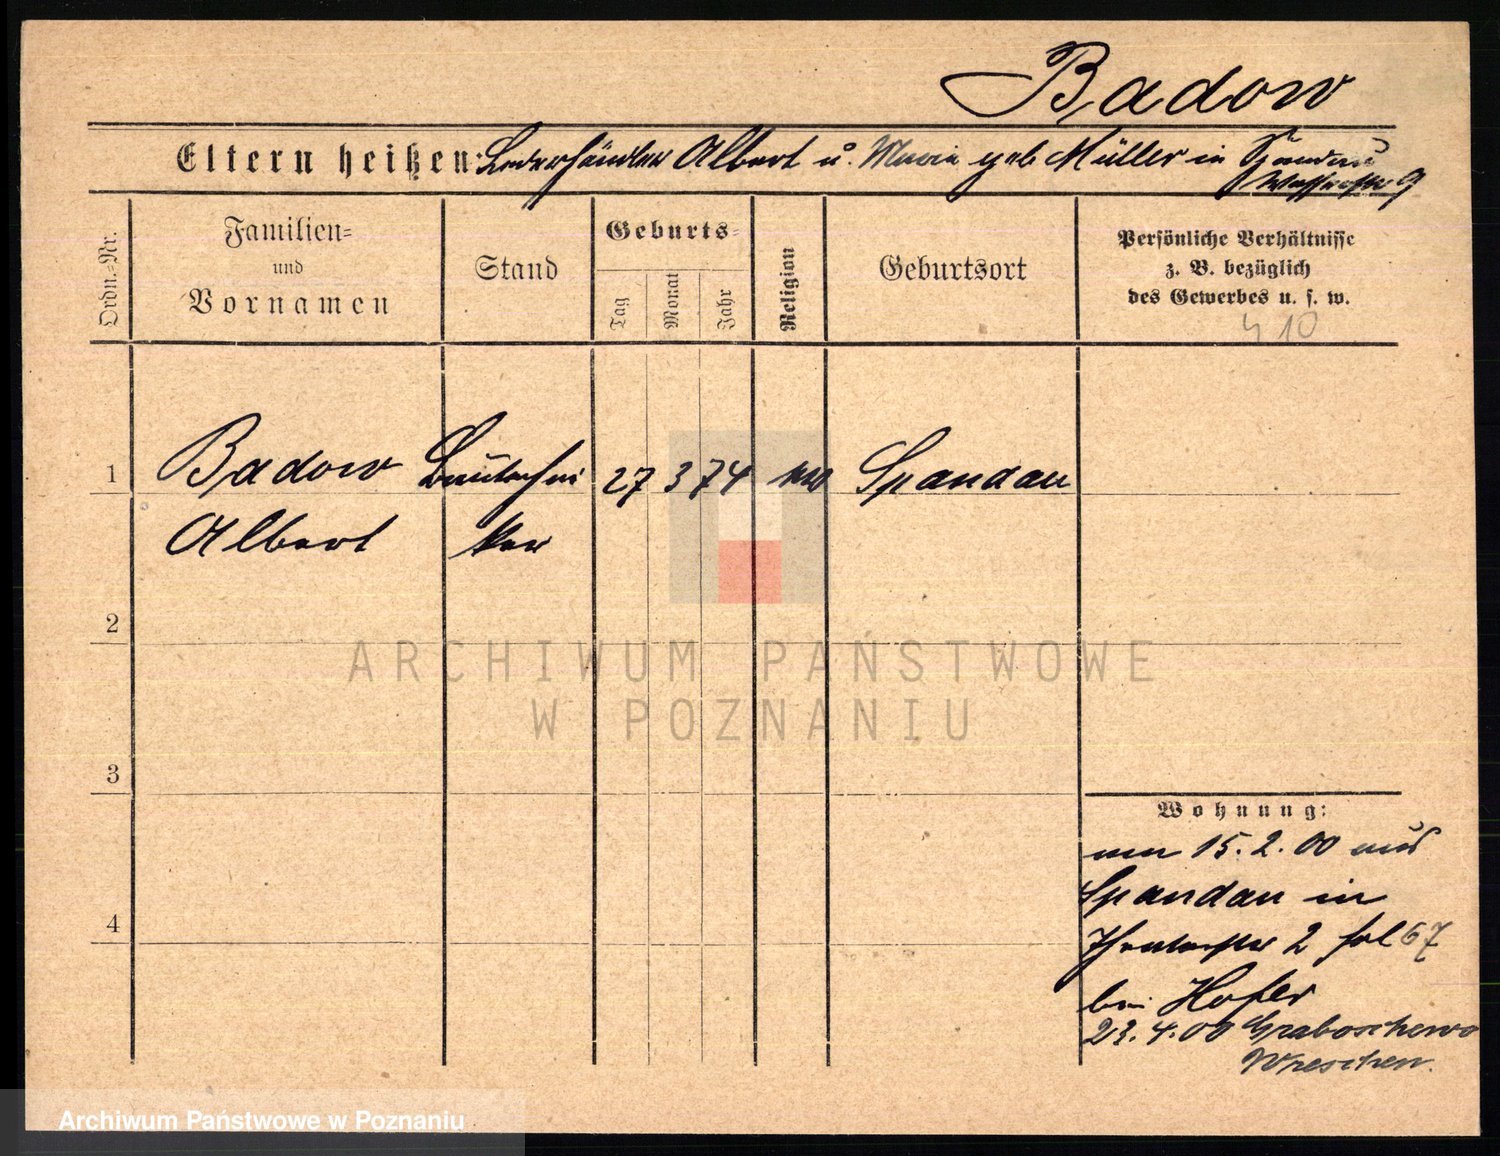 Badow
Eltern heißen: Lederhändler Albert u. Marie geb Müller in Spandau
Wasserstr 9
Ordn.-Nr.
Familien-
und
Vornamen
Stand
Geburts-
Tag
Monat
Jahr
Religion
Geburtsort
Persönliche Verhältnisse
z. B. bezüglich
des Gewerbes u. s. w.
10
1 Badow 27 3 74 Spandau
Albert ker
2
3
4
Wohnung:
am 15. 2. 00 aus
Spandau in
Theaterstr 2 fol 67
bei Hofer
23. 4. 00 Graboschewo
Wreschen.
ARCHIWUM PAŃSTWOWE
W POZNANIU
Archiwum Państwowe w Poznaniu